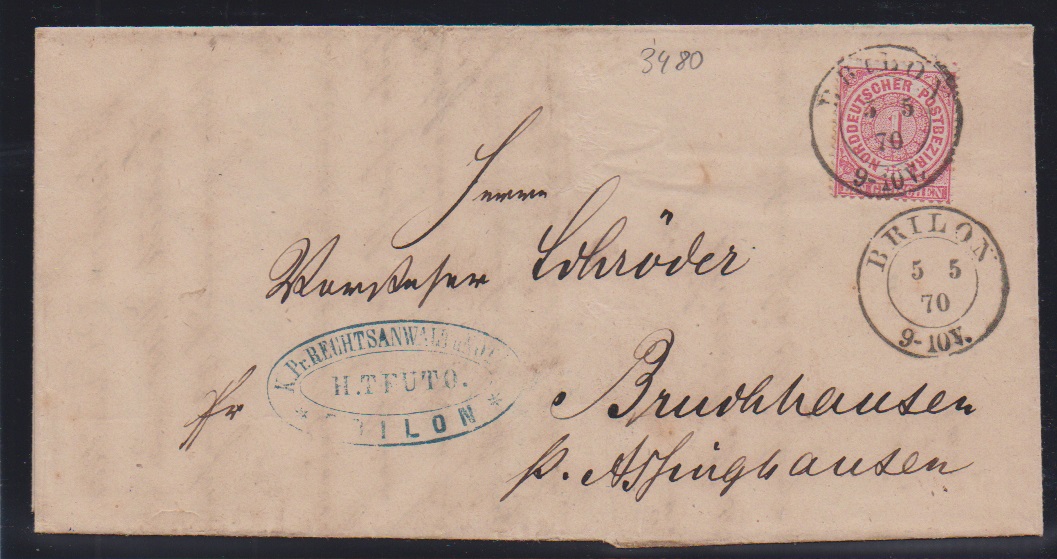 3480
BRILON
5 5
70
9-10V.
NORDDEUTSCHER POSTBEZIRK
1
GROSCHEN
BRILON
5 5
70
9-10V.
Herrn
Vorsteher Schröder
K. Pr. RECHTSANWALT
H. TEUTO.
BRILON
fr
Bruchhausen
p. Assinghausen